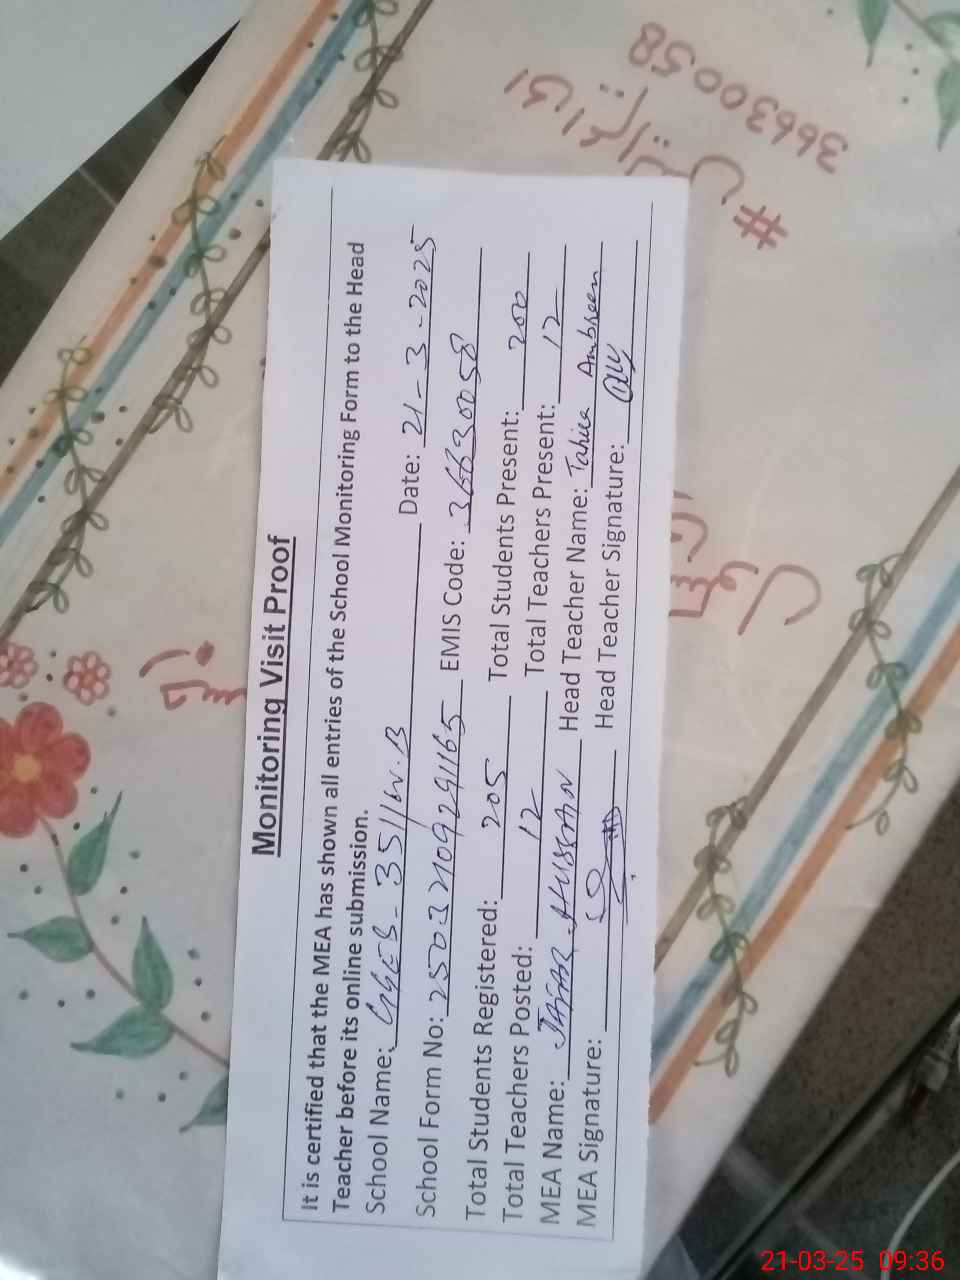 Monitoring Visit Proof
It is certified that the MEA has shown all entries of the School Monitoring Form to the Head
Teacher before its online submission.
School Name: GGES - 351/W.B Date: 21-3-2025
School Form No: 25032109291165 EMIS Code: 36630058
Total Students Registered: 205 Total Students Present: 200
Total Teachers Posted: 12 Total Teachers Present: 12
MEA Name: JAFAR HUSSAIN Head Teacher Name: Tahira Ambreen
MEA Signature: Head Teacher Signature:
#
36630058
21-03-25 09:36